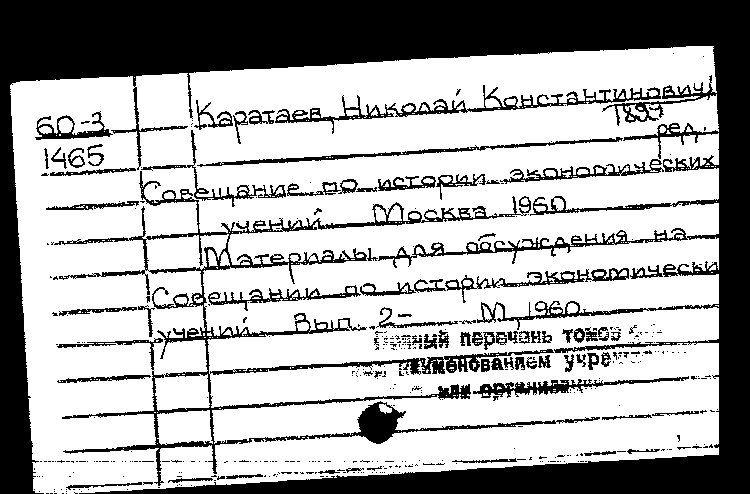 60-3 Каратаев, Николай Константинович,
1899
1465 ред.
Совещание по истории экономических
учений. Москва. 1960.
Материалы для обсуждения на
Совещании по истории экономически
учений. Вып. 2- М, 1960.
перечень томов
учре
или